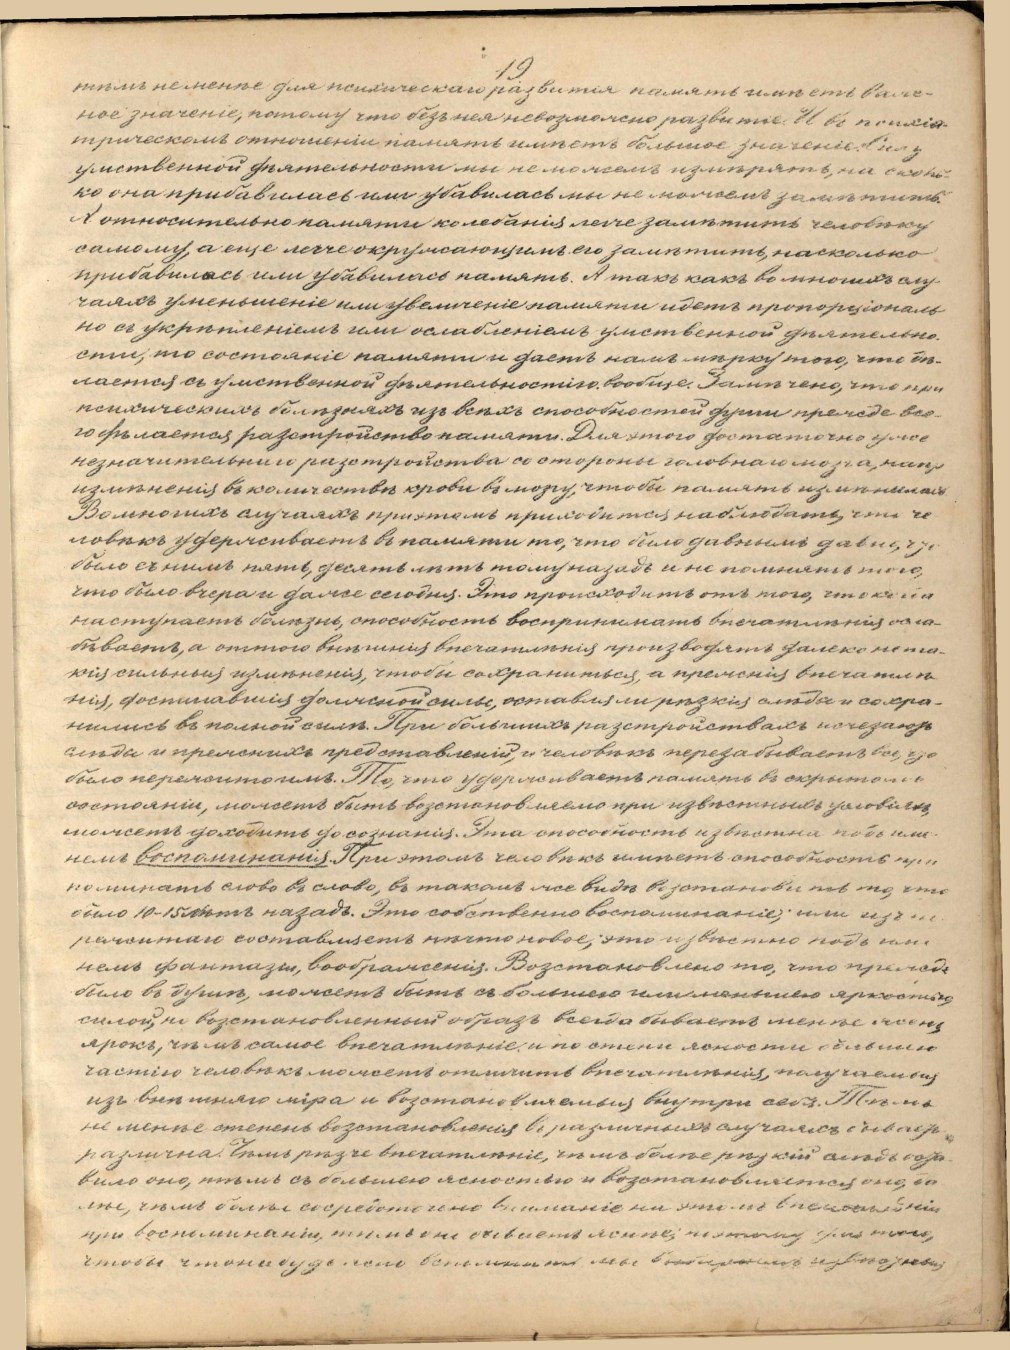 19
тѣмъ не менѣе для психическаго развитія память имѣетъ важ-
ное значеніе, потому что безъ нея невозможно развитіе. И въ психіа-
трическомъ отношеніи память имѣетъ большое значеніе. Силу
умственной дѣятельности мы не можемъ измѣрять, на сколь-
ко она прибавилась или убавилась мы не можемъ замѣтить.
А относительно памяти колебанія легче замѣтить человѣку
самому, а еще легче окружающимъ его замѣтить, насколько
прибавилась или убавилась память. А такъ какъ во многихъ слу-
чаяхъ уменьшеніе или увеличеніе памяти идетъ пропорціональ-
но съ укрѣпленіемъ или ослабленіемъ умственной дѣятельно-
сти, то состояніе памяти и даетъ намъ мѣрку того, что дѣ-
лается съ умственной дѣятельностію вообще. Замѣчено, что при
психическихъ болѣзняхъ изъ всѣхъ способностей души прежде все-
го дѣлается разстройство памяти. Для этого достаточно уже
незначительнаго разстройства со стороны головнаго мозга, напр.
измѣненія въ количествѣ крови въ мозгу, чтобы память измѣнилась.
Во многихъ случаяхъ при этомъ приходится наблюдать, что че-
ловѣкъ удерживаетъ въ памяти то, что было давнымъ давно, что
было съ нимъ пять, десять лѣтъ тому назадъ и не помнятъ того,
что было вчера и даже сегодня. Это происходитъ отъ того, что когда
наступаетъ болѣзнь, способность воспринимать впечатлѣнія осла-
бѣваетъ, а оттого внѣшнія впечатлѣнія производятъ далеко не та-
кія сильныя измѣненія, чтобы сохраниться, а прежнія впечатлѣ-
нія, достигавшія должной силы, оставляли рѣзкія слѣды и сохра-
нились въ полной силѣ. При большихъ разстройствахъ исчезаютъ
слѣды и прежнихъ представленій, и человѣкъ перезабываетъ все, что
было пережито имъ. То, что удерживаетъ память въ скрытомъ
состояніи, можетъ быть возстановляемо при извѣстныхъ условіяхъ,
можетъ доходить до сознанія. Эта способность извѣстна подъ име-
немъ воспоминанія. При этомъ человѣкъ имѣетъ способность при
поминать слово въ слово, въ такомъ же видѣ возстановить то, что
было 10-15 лѣтъ назадъ. Это собственно воспоминаніе; или изъ пе-
режитаго составляетъ нѣчто новое; это извѣстно подъ име-
немъ фантазіи, воображенія. Возстановлено то, что прежде
было въ душѣ, можетъ быть съ большею или меньшею яркостью
силой, но возстановленный образъ всегда бываетъ менѣе ясенъ
ярокъ, чѣмъ самое впечатлѣніе и по степни ясности большею
частію человѣкъ можетъ отличить впечатлѣнія, получаемыя
изъ внѣшняго міра и возстановляемыя внутри себя. Тѣмъ
не менѣе степень возстановленія въ различныхъ случаяхъ бываетъ
различна. Чѣмъ рѣзче впечатлѣніе, чѣмъ болѣе рѣзкій слѣдъ оста-
вило оно, тѣмъ съ большею ясностью и возстановляется оно,
чѣмъ болѣе сосредоточено вниманіе на этомъ впечатлѣніи
при воспоминаніи, тѣмъ оно бываетъ яснѣе; потому для того,
чтобы что нибудь ясно вспомнить мы